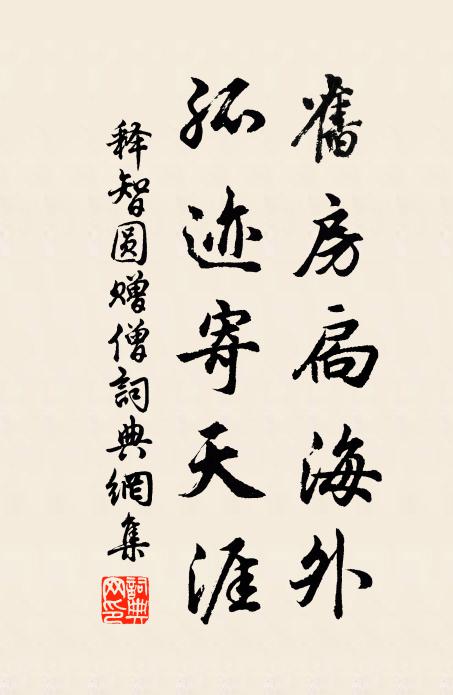 舊房扃海外
孤迹寄天涯
释智圆赠僧詞典網集
詞典网印